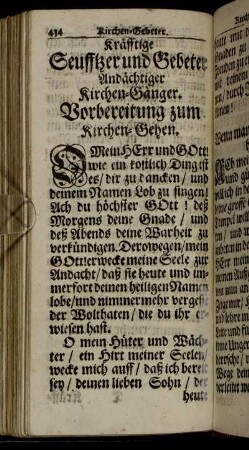 434 Kirchen-Gebeter.
Kräfftige
Seufftzer und Gebeter
Andächtiger
Kirchen-Gänger.
Vorbereitung zum
Kirchen-Gehen.
O Mein HErr und GOtt!
wie ein köstlich Ding ist
es/ dir zu dancken/ und
deinem Namen Lob zu singen!
Ach du höchster GOtt! deß
Morgens deine Gnade/ und
deß Abends deine Warheit zu
verkündigen. Derowegen/ mein
GOtt! erwecke meine Seele zur
Andacht/ daß sie heute und im-
merfort deinen heiligen Namen
lobe/ und nimmermehr vergesse
der Wolthaten/ die du ihr er-
wiesen hast.
O mein Hüter und Wäch-
ter/ ein Hirt meiner Seelen/
wecke mich auff/ daß ich bereit
sey/ deinen lieben Sohn/ der
heute